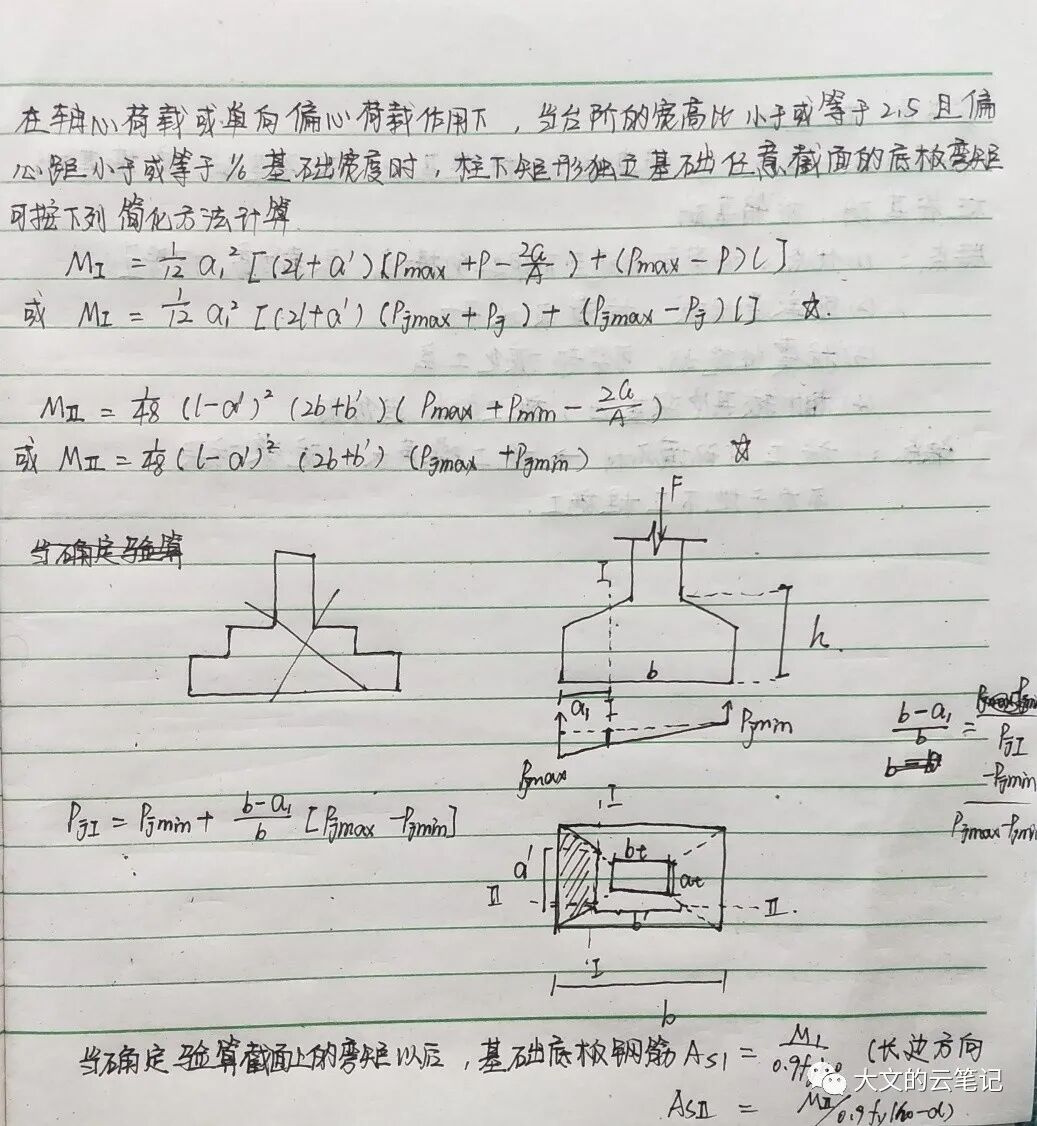 在轴心荷载或单向偏心荷载作用下，当台阶的宽高比小于或等于2.5且偏
心距小于或等于1/6基础宽度时，柱下矩形独立基础任意截面的底板弯矩
可按下列简化方法计算
MⅠ = 1/12 a₁² [(2l+a')(Pmax+P-2G/A)+(Pmax-P)l]
或 MⅠ = 1/12 a₁² [(2l+a')(Pjmax+Pj)+(Pjmax-Pj)l] ☆.
MⅡ = 1/48 (l-a')² (2b+b')(Pmax+Pmin-2G/A)
或 MⅡ = 1/48 (l-a')² (2b+b') (Pjmax+Pjmin) ☆
F
当确定验算
Ⅰ
h.
b
a₁ Ⅰ
Pjmin
Pjmax
b-a₁/b = PjⅠ-Pjmin/Pjmax-Pjmin
PjⅠ = Pjmin + b-a₁/b [Pjmax-Pjmin]
Ⅰ
bt
a' at
Ⅱ Ⅱ.
b'
Ⅰ
b
当确定验算截面上的弯矩以后，基础底板钢筋 AsⅠ = MⅠ/0.9fyh0 (长边方向
AsⅡ = MⅡ/0.9fy(h0-d)
大文的云笔记